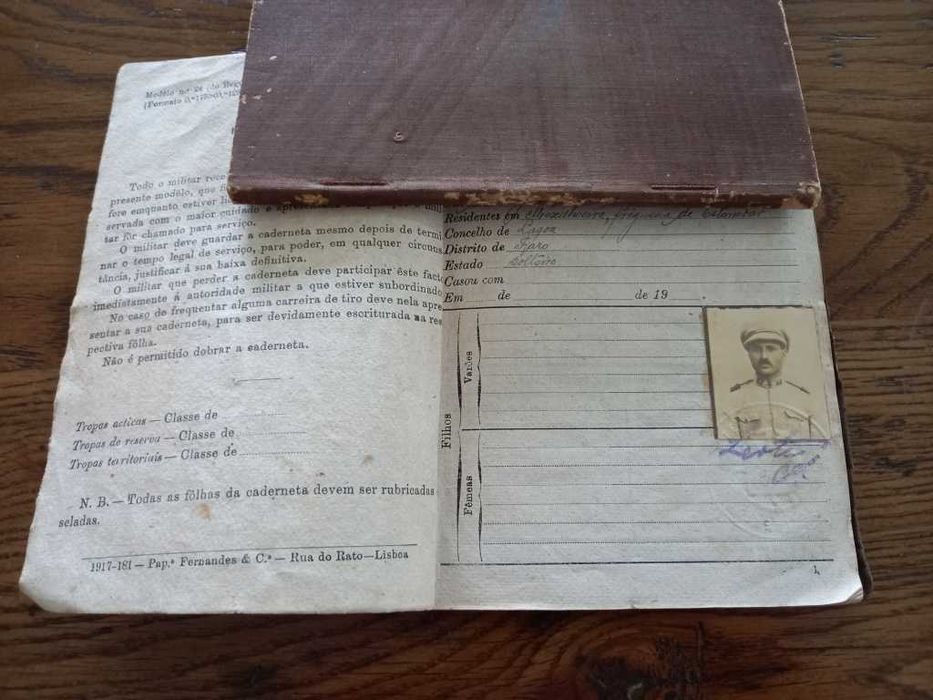 Modêlo n.º 24 (do Reg
(Formato 0,
Todo o militar rece
presente modêlo, que
fore emquanto estiver
servada com o maior cuidado e
tar fôr chamado para serviço.
O militar deve guardar a caderneta mesmo depois de termi
nar o tempo legal de serviço, para poder, em qualquer circuns
tância, justificar á sua baixa definitiva.
O militar que perder a caderneta deve participar êste facto
imediatamente á autoridade militar a que estiver subordinado
No caso de frequentar alguma carreira de tiro deve nela apre
sentar a sua caderneta, para ser devidamente escriturada na res
pectiva fôlha.
Não é permitido dobrar a caderneta.
Tropas activas — Classe de
Tropas de reserva — Classe de
Tropas territoriais — Classe de
N. B. — Todas as fôlhas da caderneta devem ser rubricadas
seladas.
1917-181 — Pap.ª Fernandes & C.ª — Rua do Rato — Lisboa
Residentes em freguesia de Estombar
Concelho de Lagoa
Distrito de Faro
Estado solteiro
Casou com
Em de de 19
Filhos
Varões
Fêmeas
1